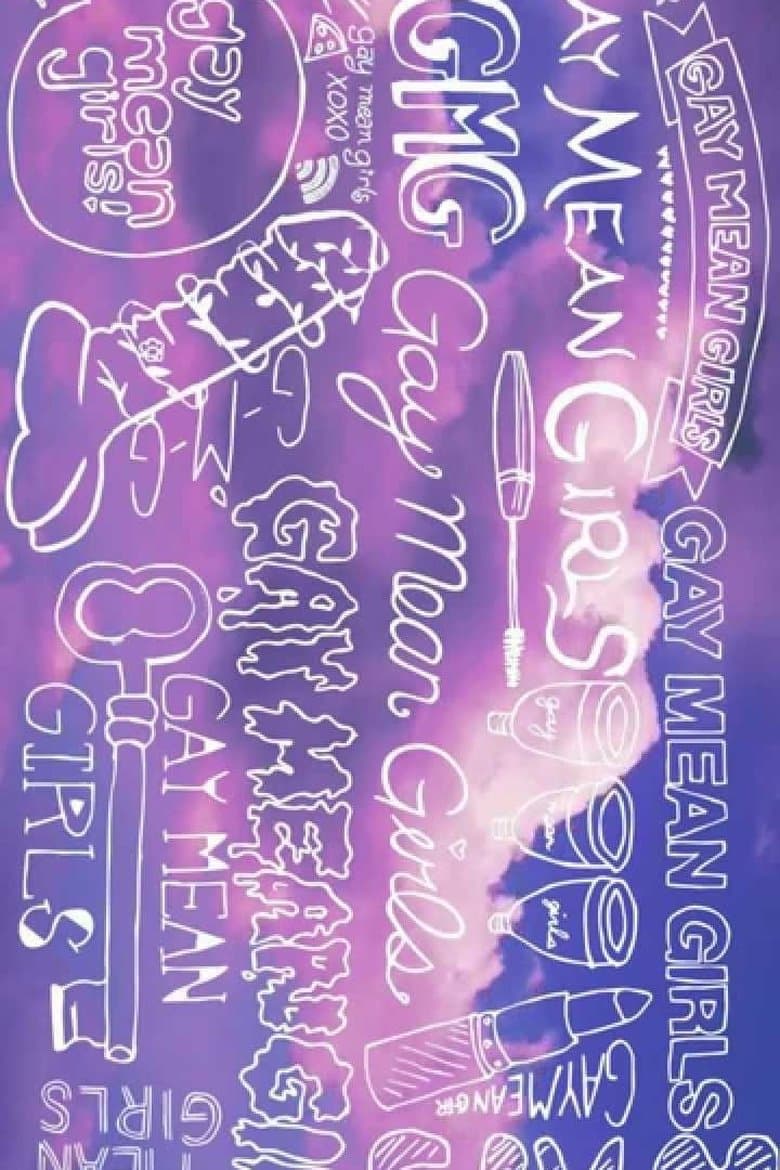 GAY MEAN GIRLS
GAY MEAN GIRLS
AY MEAN GIRLS
gay
mean
girls
GMG
Gay Mean Girls
gay mean girls
XOXO
gay
mean
girls!
GAY MEAN GI
GAY MEAN
GIRLS
GIRLS
MEAN